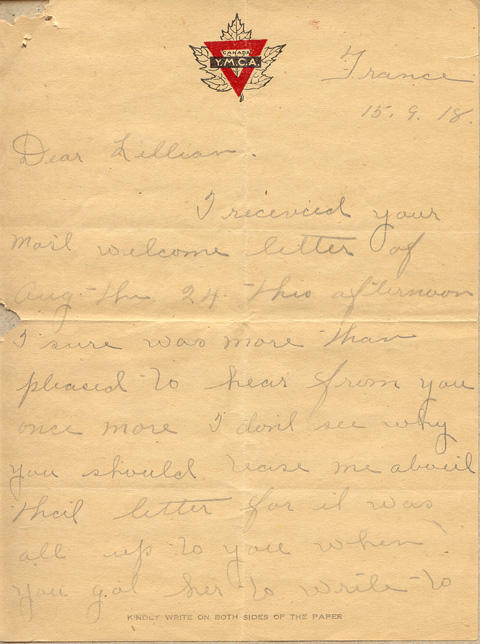 CANADA
Y.M.C.A.
France
15.9.18.
Dear Lillian.
I receiveied your
most welcome letter of
Aug the 24 this afternoon
I sure was more than
pleased to hear from you
once more I don't see why
you should tease me about
that letter for it was
all up to you when
you got her to write to
KINDLY WRITE ON BOTH SIDES OF THE PAPER